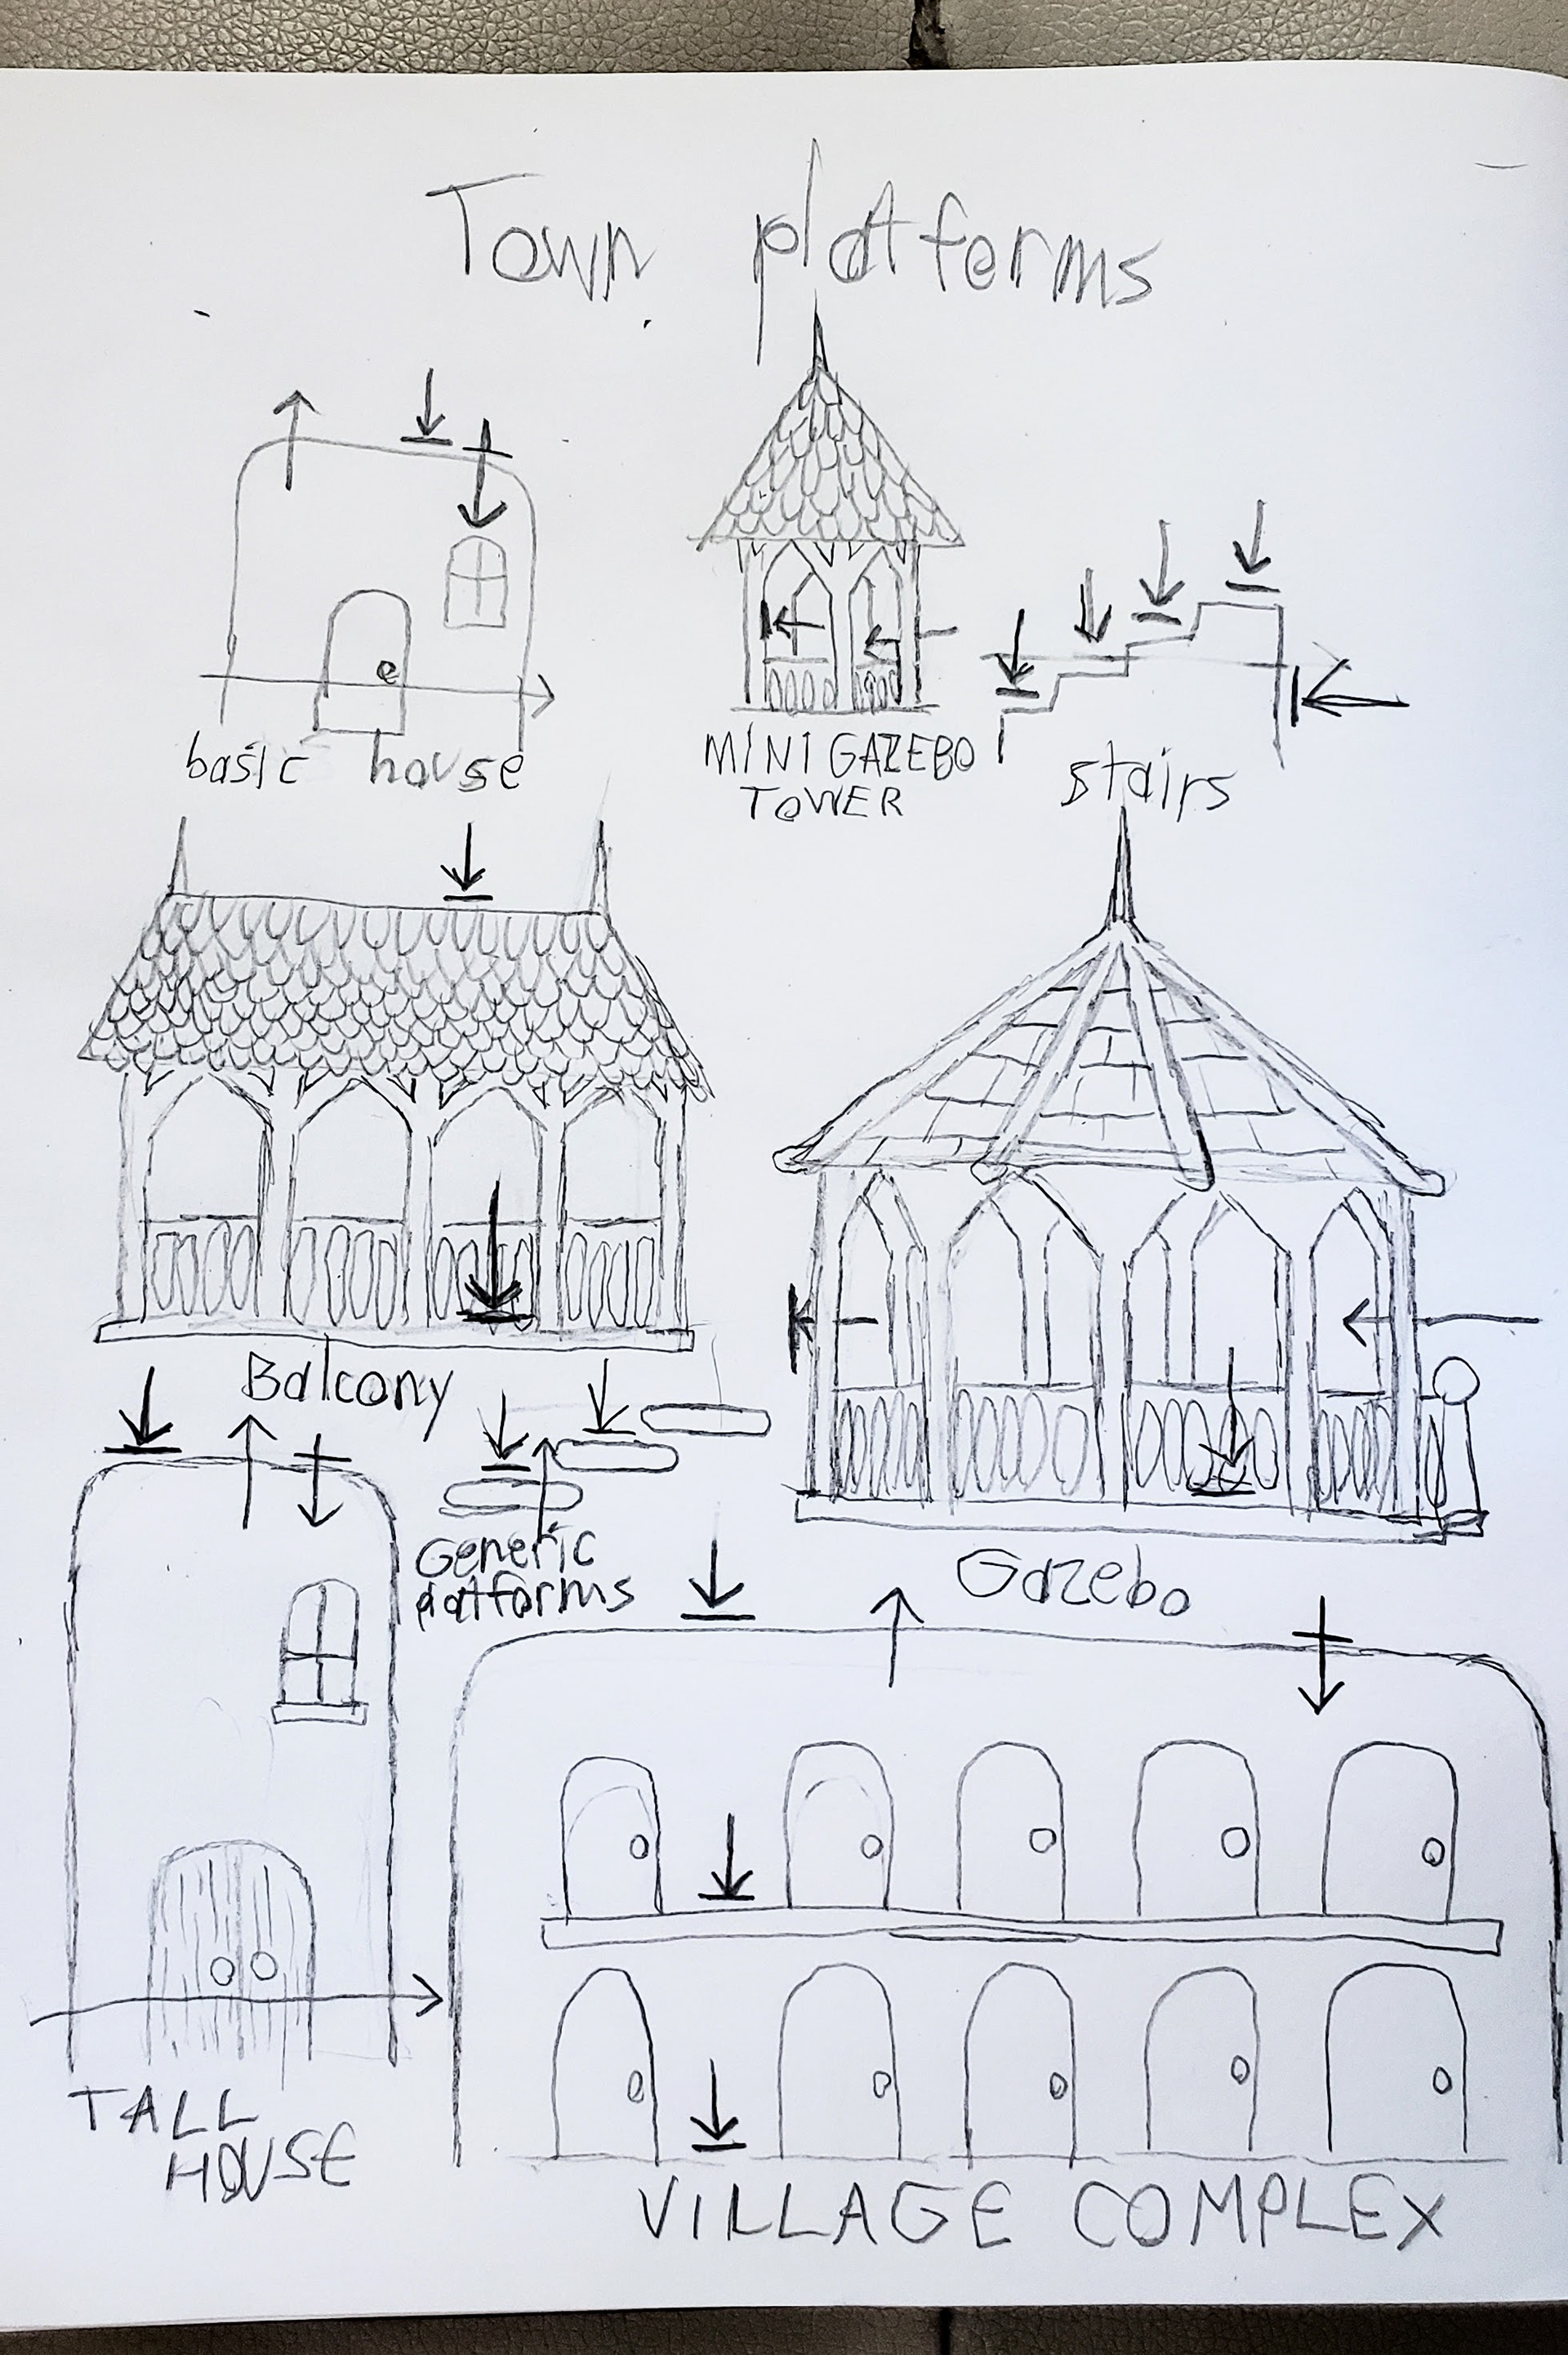 Town platforms
basic house
MINI GAZEBO
TOWER
stairs
Balcony
Generic
platforms
Gazebo
TALL
HOUSE
VILLAGE COMPLEX